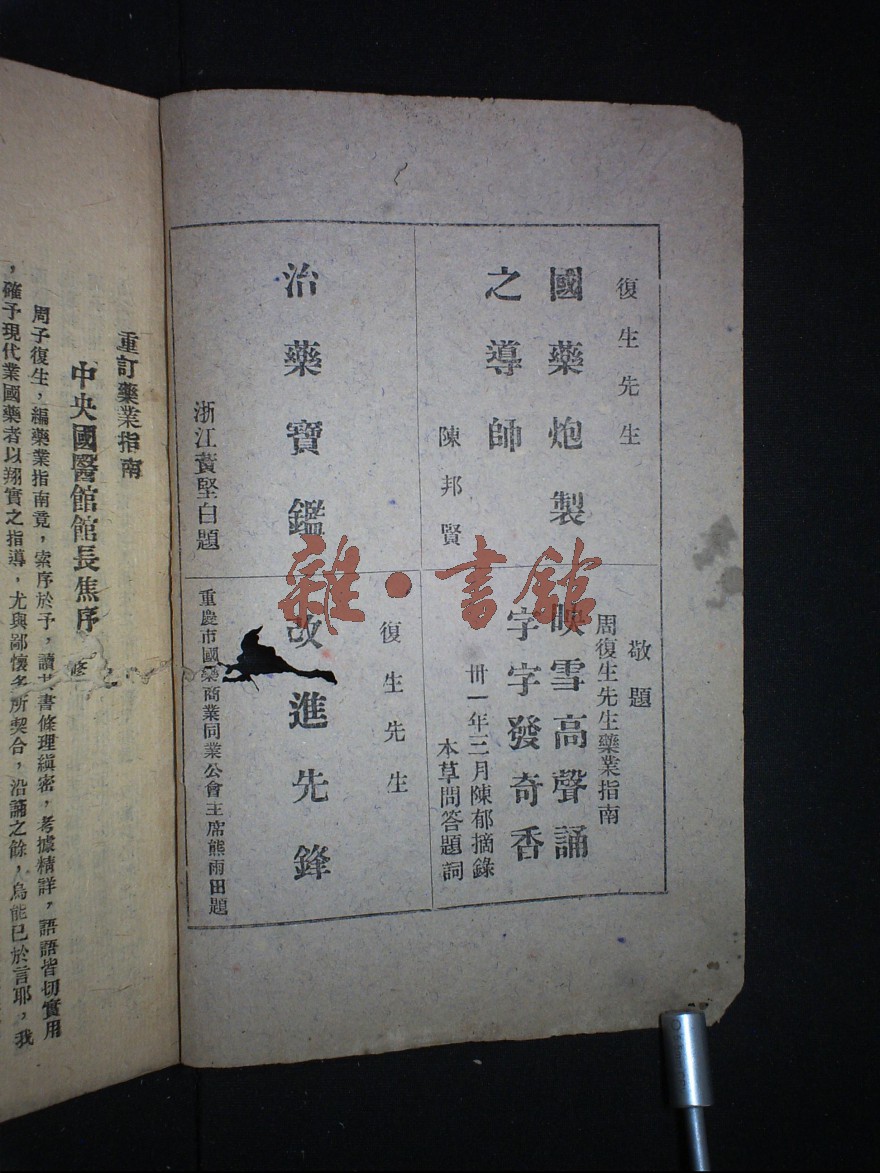 復生先生
國藥炮製
之導師
陳邦賢
敬題
周復生先生藥業指南
映雪高聲誦
字字發奇香
卅一年三月陳郁摘錄
本草問答題詞
治藥寶鑑
浙江黃堅白題
復生先生
改進先鋒
重慶市國藥商業同業公會主席熊雨田題
重訂藥業指南
中央國醫館館長焦序
周子復生，編藥業指南竟，索序於予，讀其書條理縝密，考據精詳，語語皆切實用
，確予現代業國藥者以翔實之指導，尤與鄙懷多所契合，沿誦之餘，烏能已於言耶，我
雜·書館